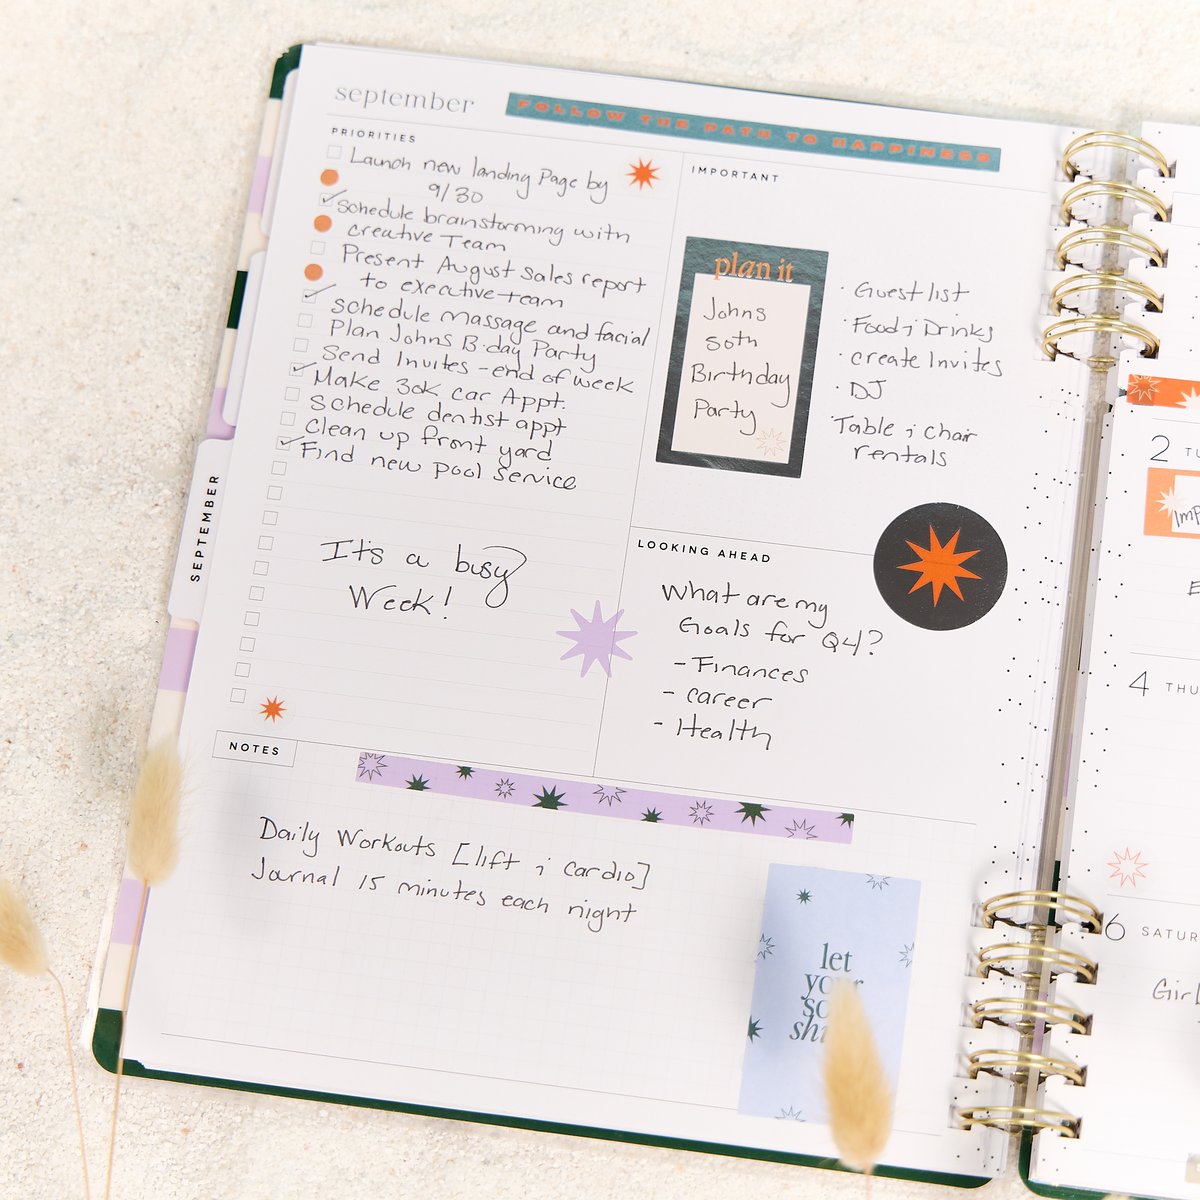 september
FOLLOW THE PATH TO HAPPINESS
PRIORITIES
Launch new landing Page by
9/30
Schedule brainstorming with
creative Team
Present August sales report
to executive team
schedule massage and facial
Plan Johns B-day Party
Send Invites - end of week
Make 30K car Appt.
Schedule dentist appt
Clean up front yard
Find new pool service
It's a busy
Week!
IMPORTANT
plan it
Johns
50th
Birthday
Party
· Guest list
· Food & Drinks
· create Invites
· DJ
· Table & Chair
rentals
LOOKING AHEAD
What are my
Goals for Q4?
- Finances
- career
- Health
SEPTEMBER
NOTES
Daily Workouts [lift & cardio]
Journal 15 minutes each night
let
your
2 TU
4 THU
6 SATUR